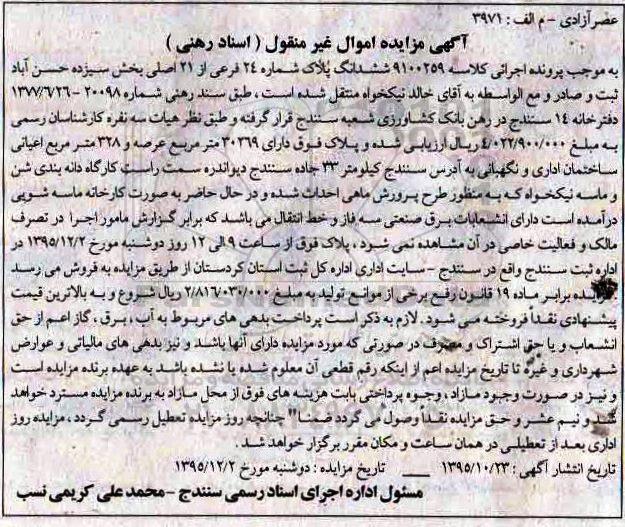 عصر آزادی - م الف : ۳۹۷۱
آگهی مزایده اموال غیر منقول ( اسناد رهنی )
به موجب پرونده اجرائی کلاسه ۹۱۰۰۲۵۹ ششدانگ پلاک شماره ۲۴ فرعی از ۲۱ اصلی بخش سیزده حسن آباد
ثبت و صادر و مع الواسطه به آقای خالد نیکخواه منتقل شده است ، طبق سند رهنی شماره ۲۰۰۹۸ - ۱۳۷۷/۶/۲۶
دفترخانه ۱۴ سنندج در رهن بانک کشاورزی شعبه سنندج قرار گرفته و طبق نظر هیات سه نفره کارشناسان رسمی
به مبلغ ۴/۰۲۲/۹۰۰/۰۰۰ ریال ارزیابی شده و پلاک فوق دارای ۳۰۳۶۹ متر مربع عرصه و ۳۲۸ متر مربع اعیانی
ساختمان اداری و نگهبانی به آدرس سنندج کیلومتر ۳۳ جاده سنندج دیواندره سمت راست کارگاه دانه بندی شن
و ماسه نیکخواه که به منظور طرح پرورش ماهی احداث شده و در حال حاضر به صورت کارخانه ماسه شویی
درآمده است دارای انشعابات برق صنعتی سه فاز و خط انتقال می باشد که برابر گزارش مامور اجرا در تصرف
مالک و فعالیت خاصی در آن مشاهده نمی شود ، پلاک فوق از ساعت ۹ الی ۱۲ روز دوشنبه مورخ ۱۳۹۵/۱۲/۲ در
اداره ثبت سنندج واقع در سنندج - سایت اداری اداره کل ثبت استان کردستان از طریق مزایده به فروش می رسد
مزایده برابر ماده ۱۹ قانون رفع برخی از موانع تولید به مبلغ ۲/۸۱۶/۰۳۰/۰۰۰ ریال شروع و به بالاترین قیمت
پیشنهادی نقداً فروخته می شود . لازم به ذکر است پرداخت بدهی های مربوط به آب ، برق ، گاز اعم از حق
انشعاب و یا حق اشتراک و مصرف در صورتی که مورد مزایده دارای آنها باشد و نیز بدهی های مالیاتی و عوارض
شهرداری و غیره تا تاریخ مزایده اعم از اینکه رقم قطعی آن معلوم شده یا نشده باشد به عهده برنده مزایده است
و نیز در صورت وجود مازاد ، وجوه پرداختی بابت هزینه های فوق از محل مازاد به برنده مزایده مسترد خواهد
شد و نیم عشر و حق مزایده نقداً وصول می گردد ضمناً" چنانچه روز مزایده تعطیل رسمی گردد ، مزایده روز
اداری بعد از تعطیلی در همان ساعت و مکان مقرر برگزار خواهد شد .
تاریخ انتشار آگهی : ۱۳۹۵/۱۰/۲۳ ___ تاریخ مزایده : دوشنبه مورخ ۱۳۹۵/۱۲/۲
مسئول اداره اجرای اسناد رسمی سنندج - محمدعلی کریمی نسب